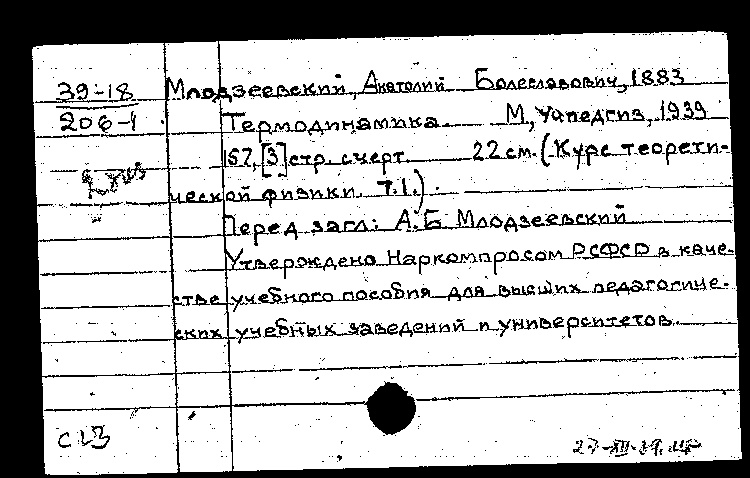 39-18 Млодзеевский, Анатолий Болеславович, 1883
206-1 Термодинамика. М, Учпедгиз, 1939
157, [3] стр. с черт. 22 см. (Курс теорети-
ческой физики. Т.1.).
Перед загл: А.Б Млодзеевский
Утверждено Наркомпросом РСФСР в каче-
стве учебного пособия для высших педагогиче-
ских учебных заведений и университетов.
С 13
27-XII-39.